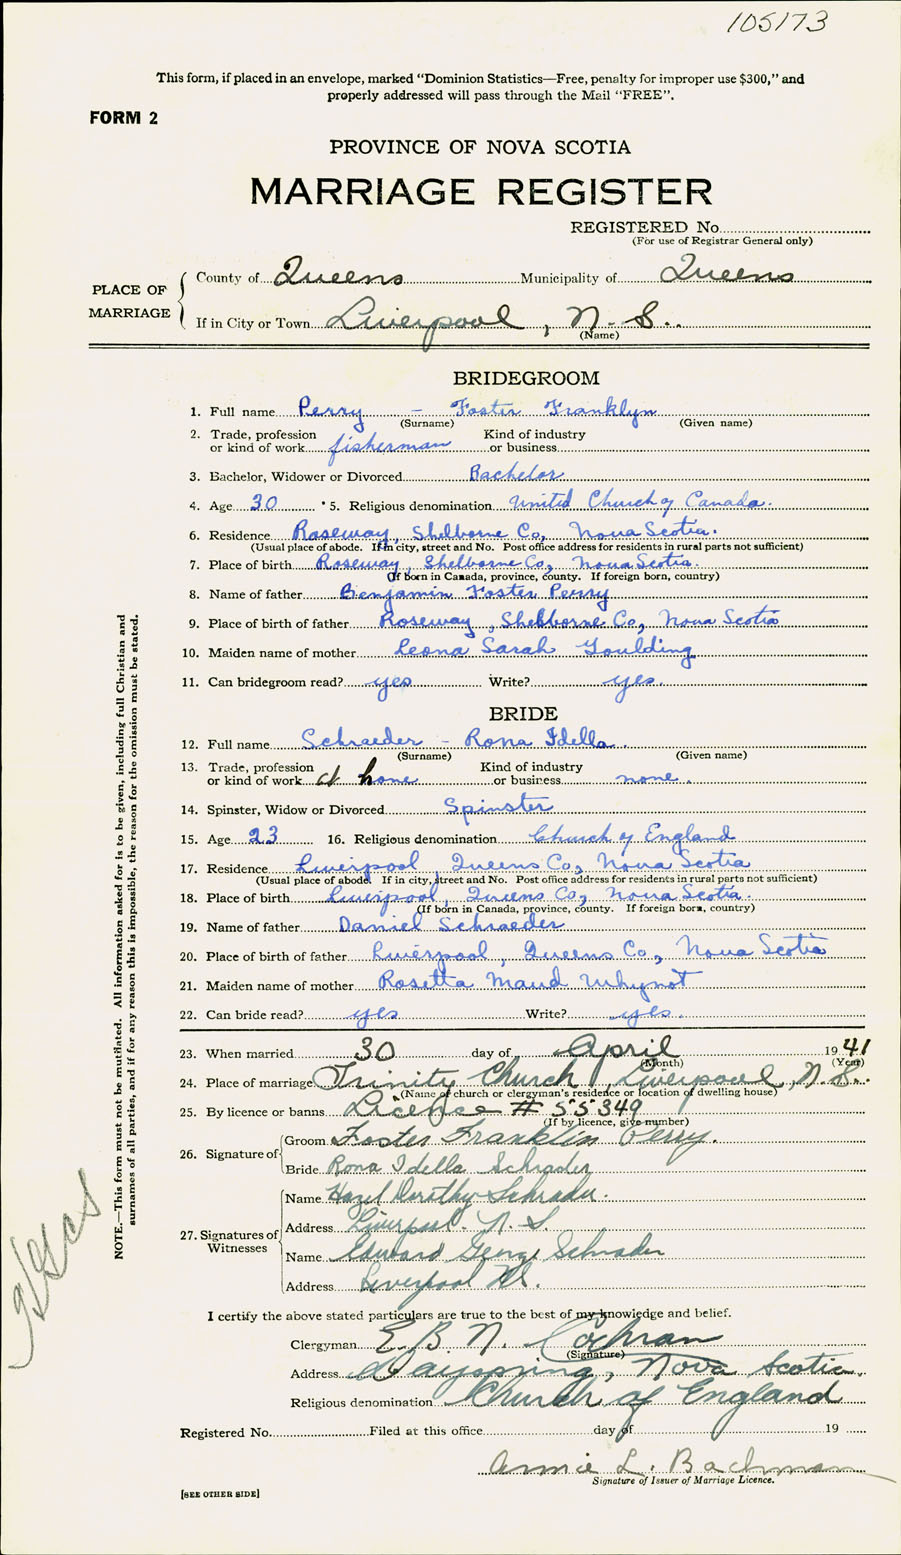 105173
This form, if placed in an envelope, marked "Dominion Statistics—Free, penalty for improper use $300," and
properly addressed will pass through the Mail "FREE".
FORM 2
PROVINCE OF NOVA SCOTIA
MARRIAGE REGISTER
REGISTERED No.
(For use of Registrar General only)
PLACE OF MARRIAGE
County of Queens Municipality of Queens
If in City or Town Liverpool, N. S.
(Name)
BRIDEGROOM
1. Full name Perry - Foster Franklyn
(Surname) (Given name)
2. Trade, profession or kind of work fisherman Kind of industry or business
3. Bachelor, Widower or Divorced Bachelor
4. Age 30 5. Religious denomination United Church of Canada.
6. Residence Roseway, Shelborne Co, Nova Scotia.
(Usual place of abode. If in city, street and No. Post office address for residents in rural parts not sufficient)
7. Place of birth Roseway, Shelborne Co, Nova Scotia.
(If born in Canada, province, county. If foreign born, country)
8. Name of father Benjamin Foster Perry
9. Place of birth of father Roseway, Shelborne Co, Nova Scotia
10. Maiden name of mother Leona Sarah Goulding
11. Can bridegroom read? yes Write? yes.
BRIDE
12. Full name Schraeder - Rona Idella.
(Surname) (Given name)
13. Trade, profession or kind of work at home Kind of industry or business none.
14. Spinster, Widow or Divorced Spinster
15. Age 23 16. Religious denomination Church of England
17. Residence Liverpool, Queens Co, Nova Scotia
(Usual place of abode. If in city, street and No. Post office address for residents in rural parts not sufficient)
18. Place of birth Liverpool, Queens Co, Nova Scotia.
(If born in Canada, province, county. If foreign born, country)
19. Name of father Daniel Schraeder
20. Place of birth of father Liverpool, Queens Co, Nova Scotia
21. Maiden name of mother Rosetta Maud Whynot
22. Can bride read? yes Write? yes.
23. When married 30 day of April 1941
(Month) (Year)
24. Place of marriage Trinity Church, Liverpool, N. S.
(Name of church or clergyman's residence or location of dwelling house)
25. By licence or banns License # 55349
(If by licence, give number)
26. Signature of
Groom Foster Franklin Perry.
Bride Rona Idella Schrader
27. Signatures of Witnesses
Name Hazel Dorothy Schrader.
Address Liverpool. N. S.
Name Edward George Schrader
Address Liverpool N.S.
I certify the above stated particulars are true to the best of my knowledge and belief.
Clergyman E. B. N. Cochran
(Signature)
Address Dayspring, Nova Scotia.
Religious denomination Church of England
Registered No. Filed at this office day of 19
Annie L. Bachman
Signature of Issuer of Marriage Licence.
[SEE OTHER SIDE]
NOTE.—This form must not be mutilated. All information asked for is to be given, including full Christian and
surnames of all parties, and if for any reason this is impossible, the reason for the omission must be stated.